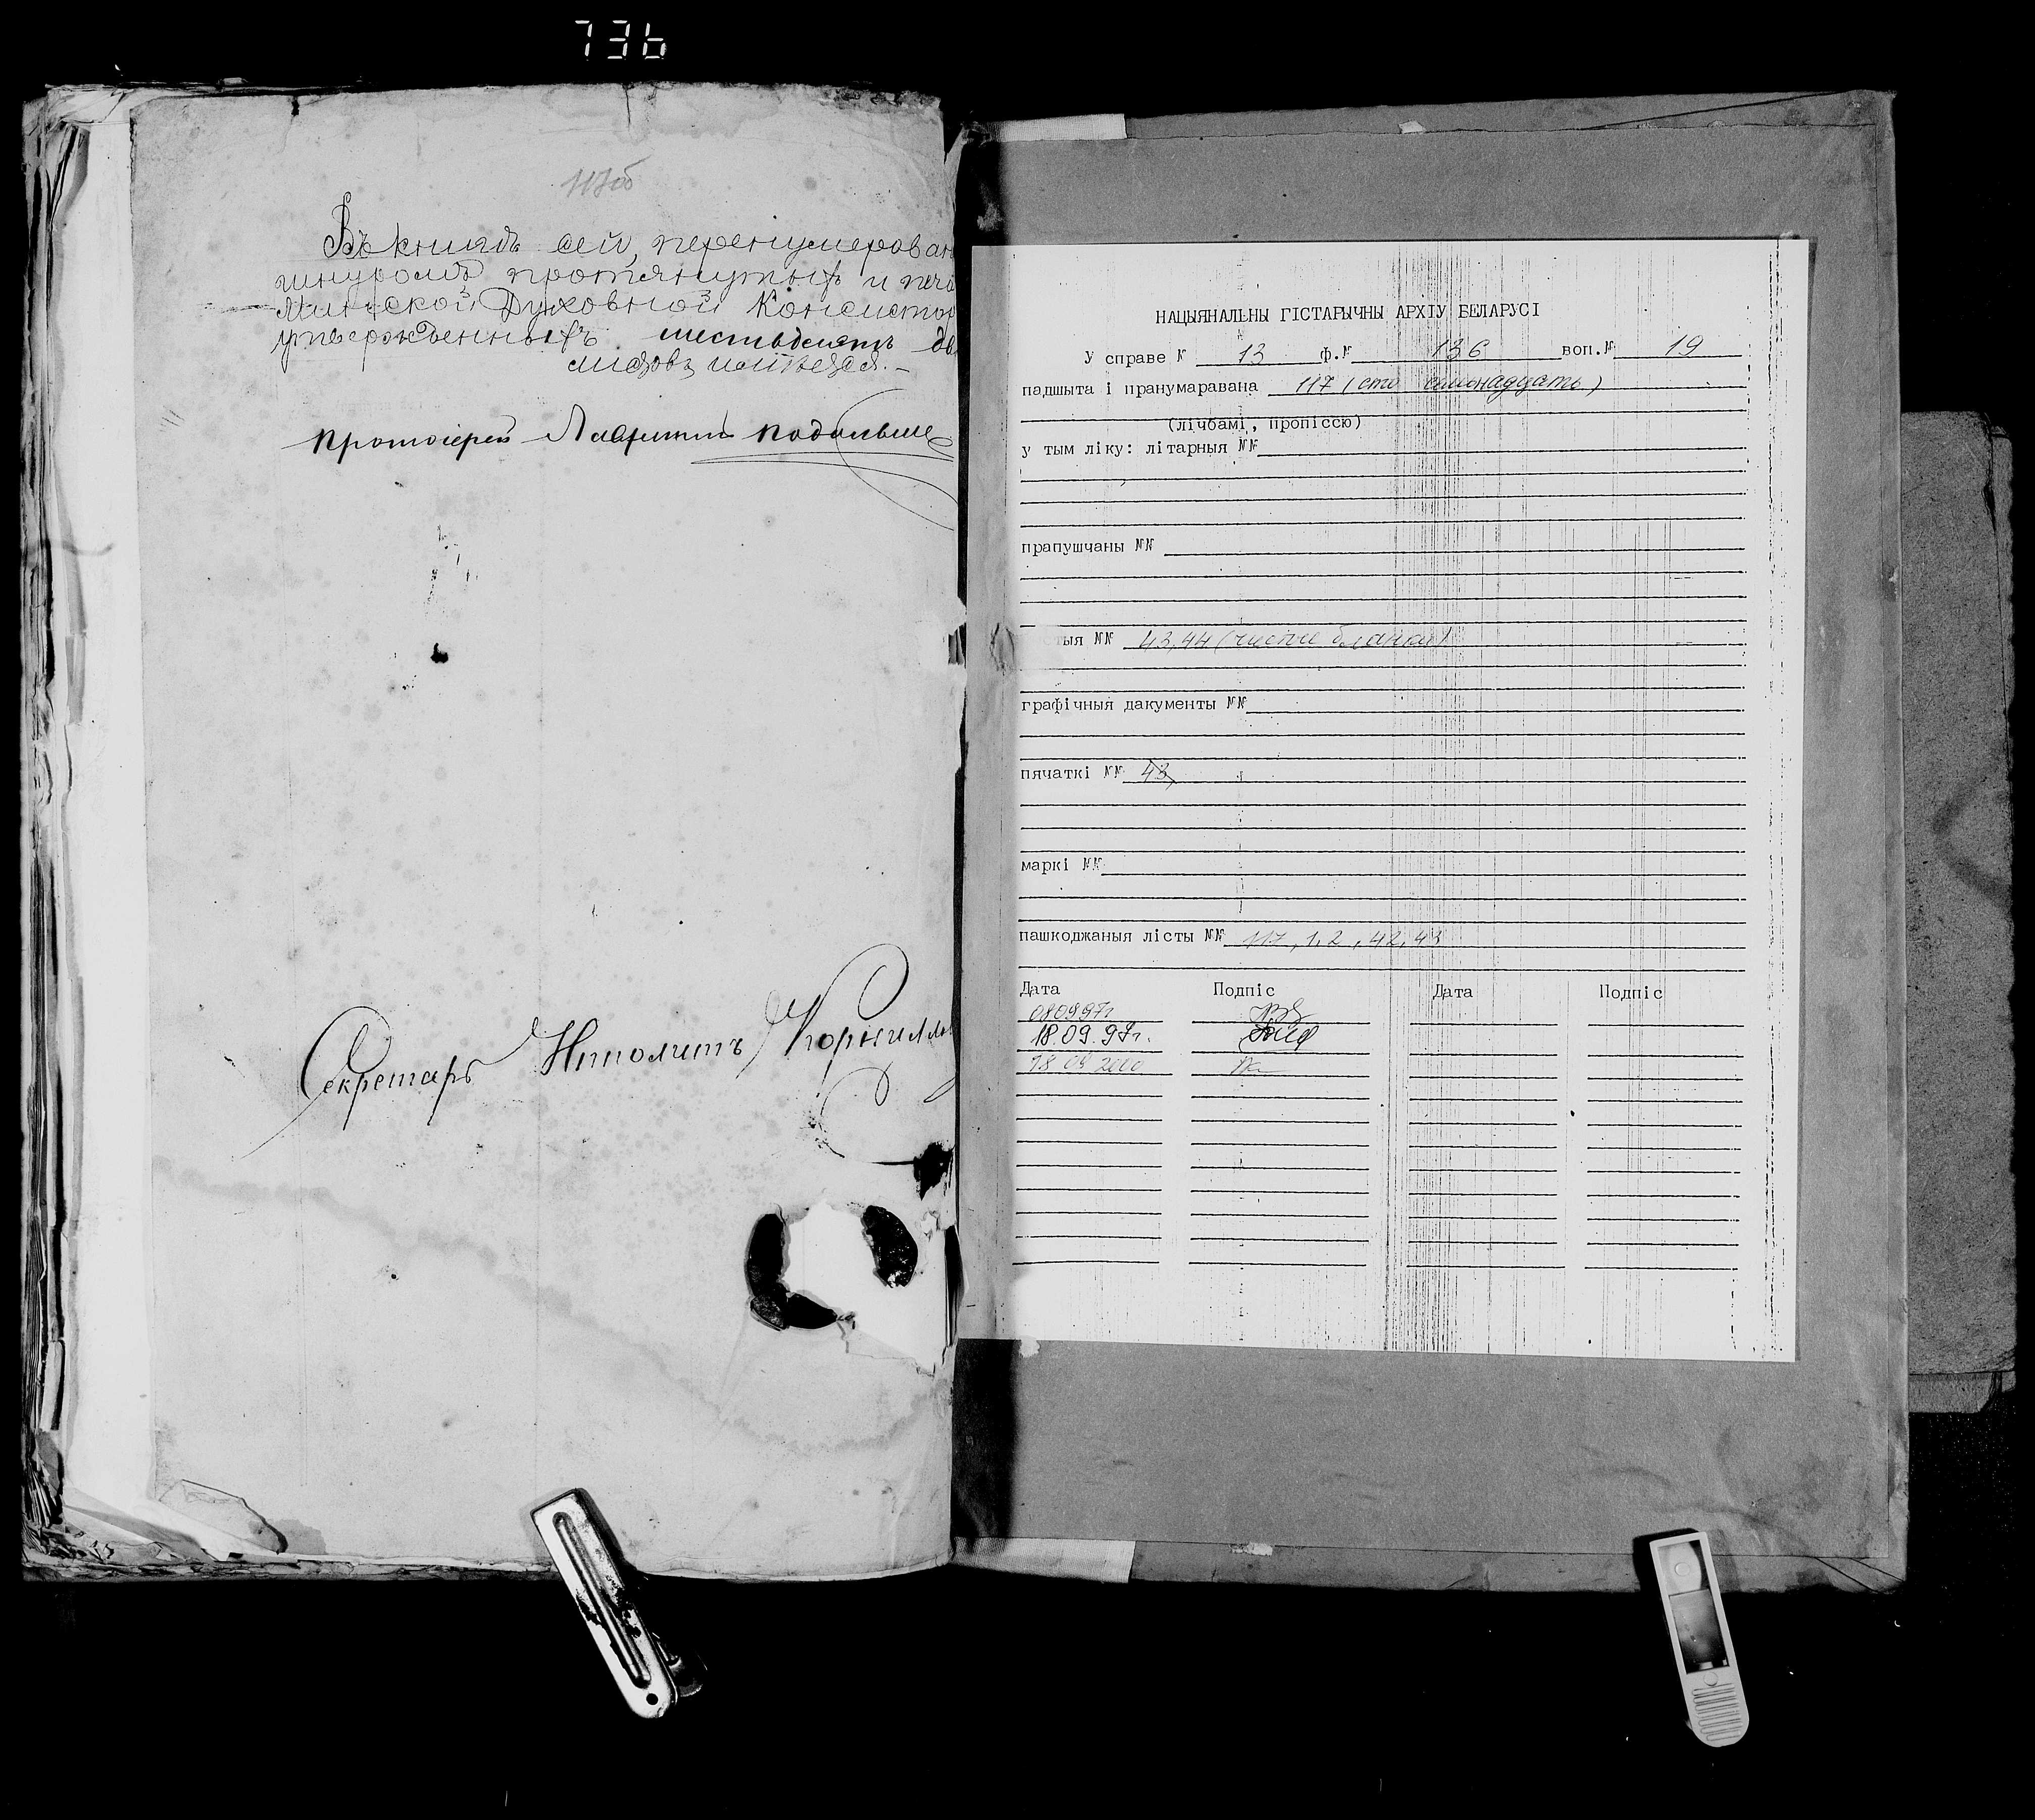 736
117об
Въ книгѣ сей, перенумерован
шнуромъ протянутыхъ и печа
Минской Духовной Консистор
утвержденныхъ шестьдесятъ дв
листовъ имѣется.–
Протоіерей Подольше
Секретарь Ипполитъ Корнилло
НАЦЫЯНАЛЬНЫ ГІСТАРЫЧНЫ АРХІУ БЕЛАРУСІ
У справе № 13 ф.№ 136 воп.№ 19
падшыта і пранумаравана 117 (сто семнадцать)
(лічбамі, пропіссю)
у тым ліку: літарныя №№
прапушчаны №№
тыя №№ 43,44 (чистые бланки)
графічныя дакументы №№
пячаткі №№ 43,
маркі №№
пашкоджаныя лісты №№ 117, 1, 2, 42, 43
Дата Подпіс Дата Подпіс
080997г
18.09.97г.
18 09 2010